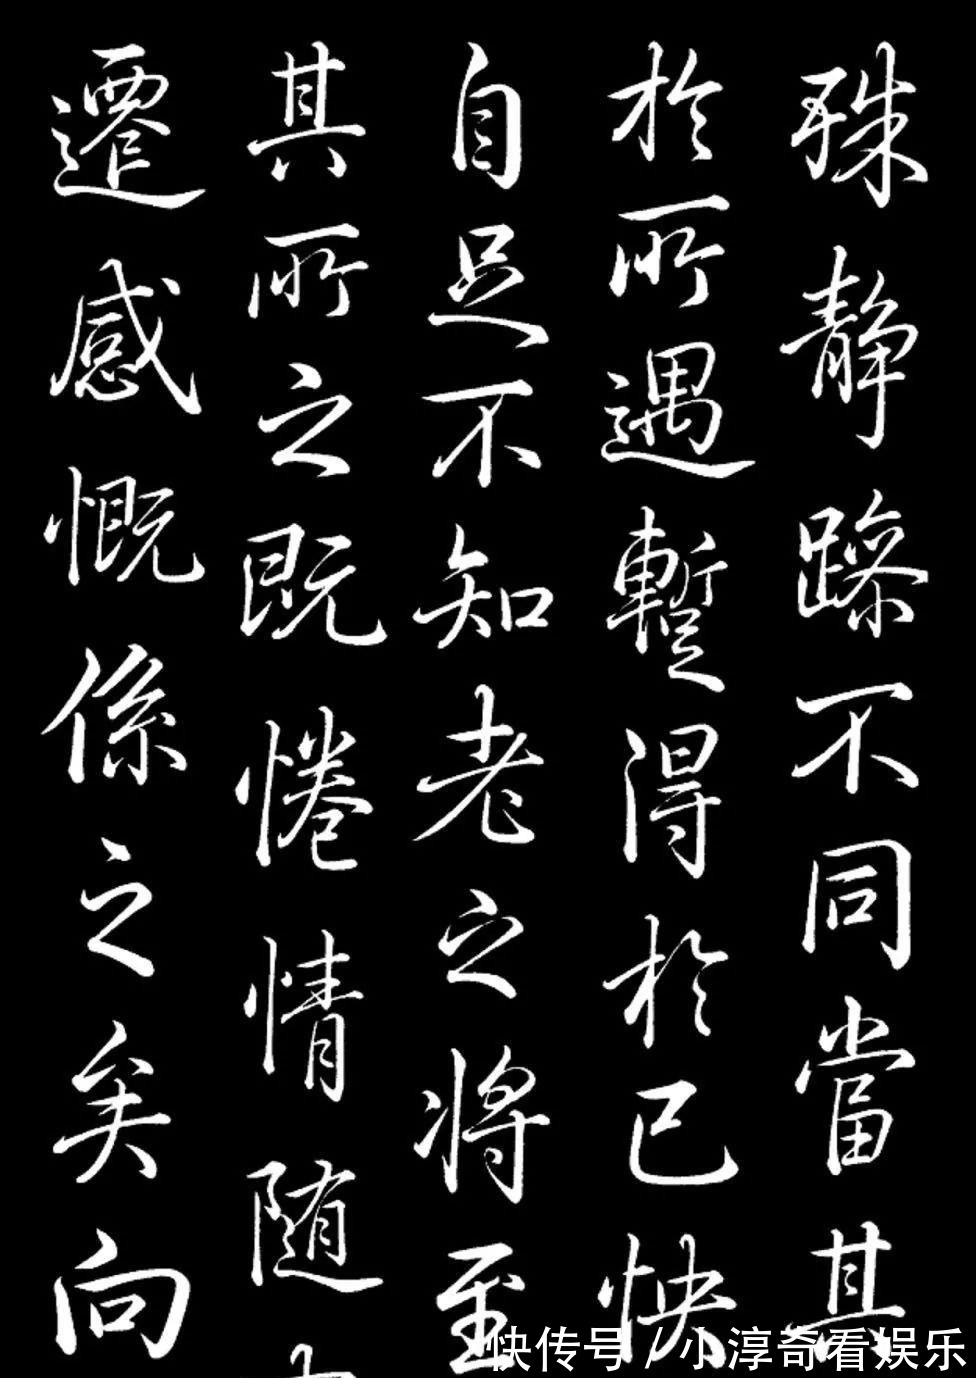 殊静躁不同當其
於所遇蹔得於己快
自足不知老之将至
其所之既惓情随
遷感慨係之矣向
快传号/小淳奇看娱乐